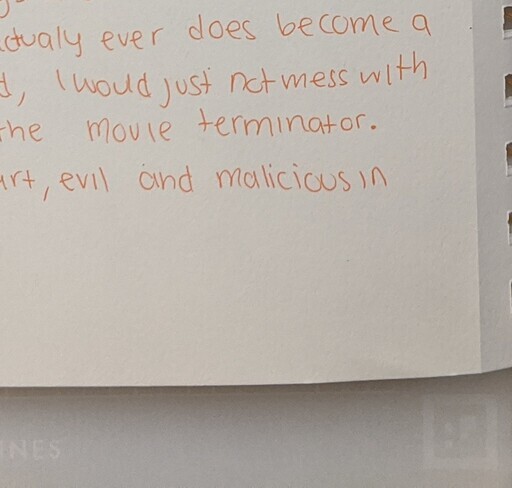 ctualy ever does become a
d, I would just not mess with
the movie terminator.
art, evil and malicious in
INES